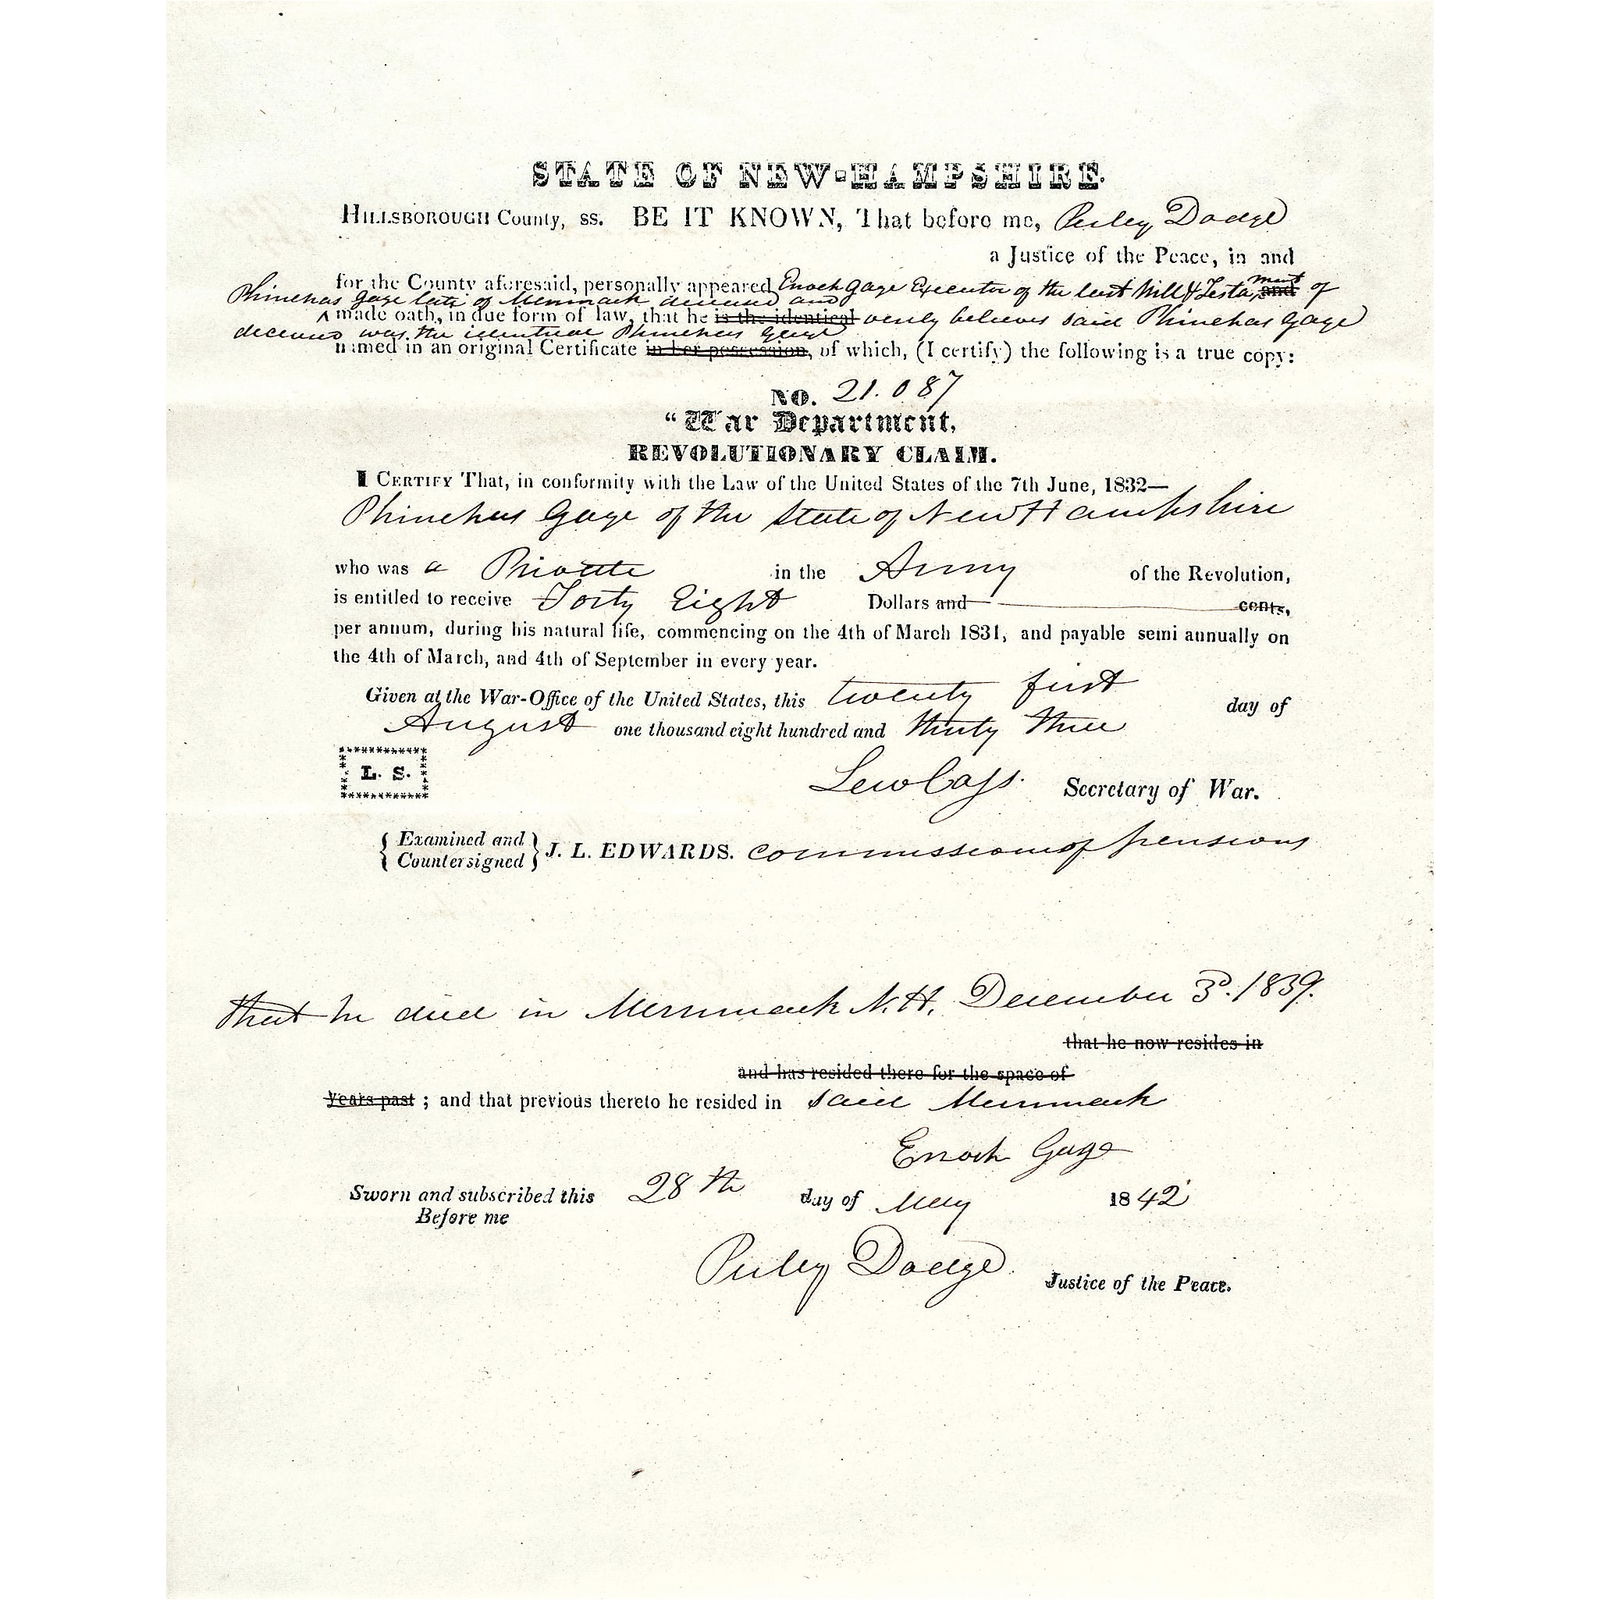 STATE OF NEW-HAMPSHIRE.
HILLSBOROUGH County, ss. BE IT KNOWN, That before me, Perley Dodge
a Justice of the Peace, in and
for the County aforesaid, personally appeared Enoch Gage Executor of the last Will & Testa ment and of
Phinehas Gage late of Merrimack deceased and
made oath, in due form of law, that he is the identical verily believes said Phinehas Gage
deceased was the identical Phinehas Gage
named in an original Certificate in her possession, of which, (I certify) the following is a true copy:
NO. 21.087
"War Department,
REVOLUTIONARY CLAIM.
I CERTIFY That, in conformity with the Law of the United States of the 7th June, 1832—
Phinehas Gage of the State of New Hampshire
who was a Private in the Army of the Revolution,
is entitled to receive Forty Eight Dollars and cents,
per annum, during his natural life, commencing on the 4th of March 1831, and payable semi annually on
the 4th of March, and 4th of September in every year.
Given at the War-Office of the United States, this twenty first day of
August one thousand eight hundred and thirty three
L. S.
Lew Cass. Secretary of War.
Examined and
Countersigned
J. L. EDWARDS. commission of pensions
that he died in Merrimack N.H. December 3d. 1839.
that he now resides in
and has resided there for the space of
years past ; and that previous thereto he resided in said Merrimack
Enoch Gage
Sworn and subscribed this 28th day of May 1842
Before me
Perley Dodge. Justice of the Peace.